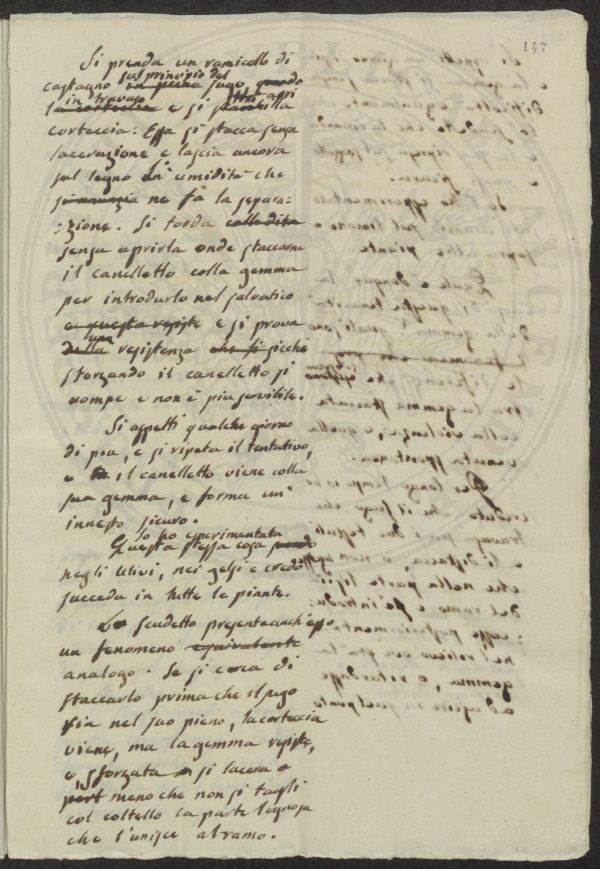 147
Si prenda un ramicello di
sul principio del
castagno in piena sugo, quando
in travaso si apri
la corteccia e si stacchi la
corteccia: Essa si stacca senza
lacerazione e lascia ancora
sul legno un' umidità che
si annunzia ne fà la separa:
:zione. Si torda colle dita
senza aprirla onde staccarne
il canelletto colla gemma
per introdurlo nel salvatico
e questa resiste e si prova
una
della resistenza che si sicchè
sforzando il canelletto si
rompe e non è piu servibile.
Si aspetti qualche giorno
di piu, e si ripeta il tentativo,
e il canelletto viene colla
sua gemma, e forma un'
innesto sicuro.
Io ho esperimentata
Questa stessa cosa
negli Ulivi, nei gelsi e credo
succeda in tutte le piante.
Lo Scudetto presenta anch'esso
un fenomeno equivalente
analogo. Se si cerca di
staccarlo prima che il sugo
sia nel suo pieno, la corteccia
viene, ma la gemma resiste,
e, sforzata si lacera
meno che non si tagli
col coltello la parte legnosa
che l'unisce al ramo.